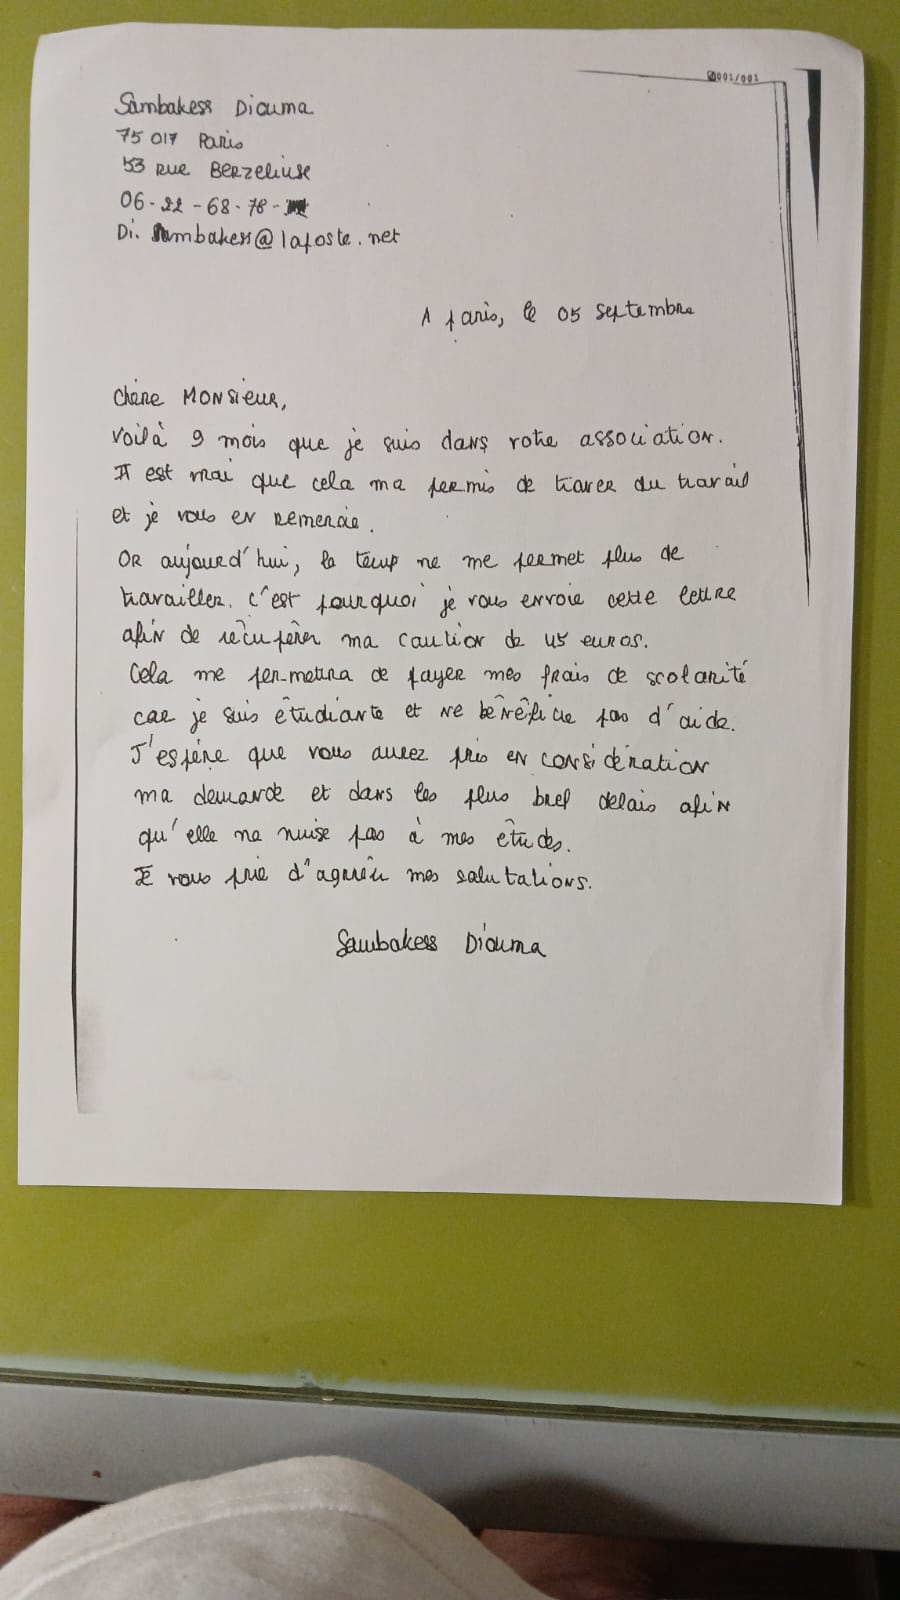 001/001
Sambakess Diouma
75 017 Paris
53 Rue Berzeliuse
06-22-68-78-
Di. Sambakess@laposte.net
A paris, le 05 septembre
Chère Monsieur,
Voilà 9 mois que je suis dans votre association.
Il est vrai que cela ma permis de traver du travail
et je vous en remercie.
Or aujourd'hui, le temp ne me permet plus de
travailler. C'est pourquoi je vous envoie cette lettre
afin de récupérer ma caution de 45 euros.
Cela me per-mettra de payer mes frais de scolarité
car je suis étudiante et ne bénéficie pas d'aide.
J'espère que vous aurez pris en considération
ma demande et dans les plus bref delais afin
qu'elle ne nuise pas à mes études.
Je vous prie d'agréer mes salutations.
Sambakess Diouma